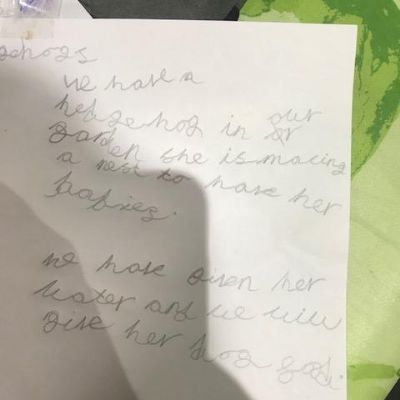 gehogs
we have a
hedgehog in our
garden she is macing
a nest to have her
babies.
we have given her
water and we will
give her frog